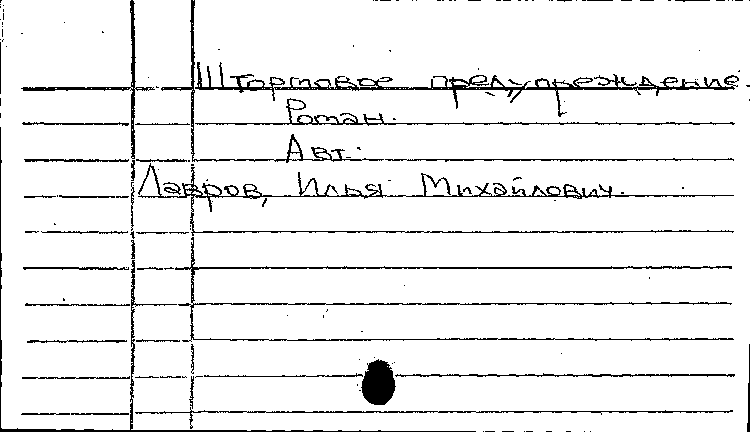 Штормовое предупреждение.
Роман.
Авт.:
Лавров, Илья Михайлович.